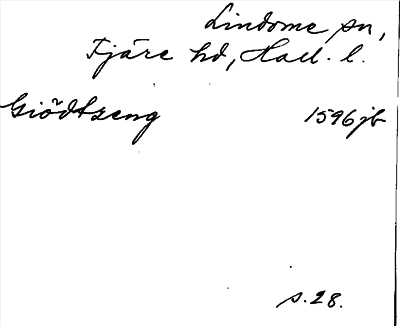 Lindome sn,
Fjäre hd, Hall. l.
Giödtzeng 1596 jb
s. 28.